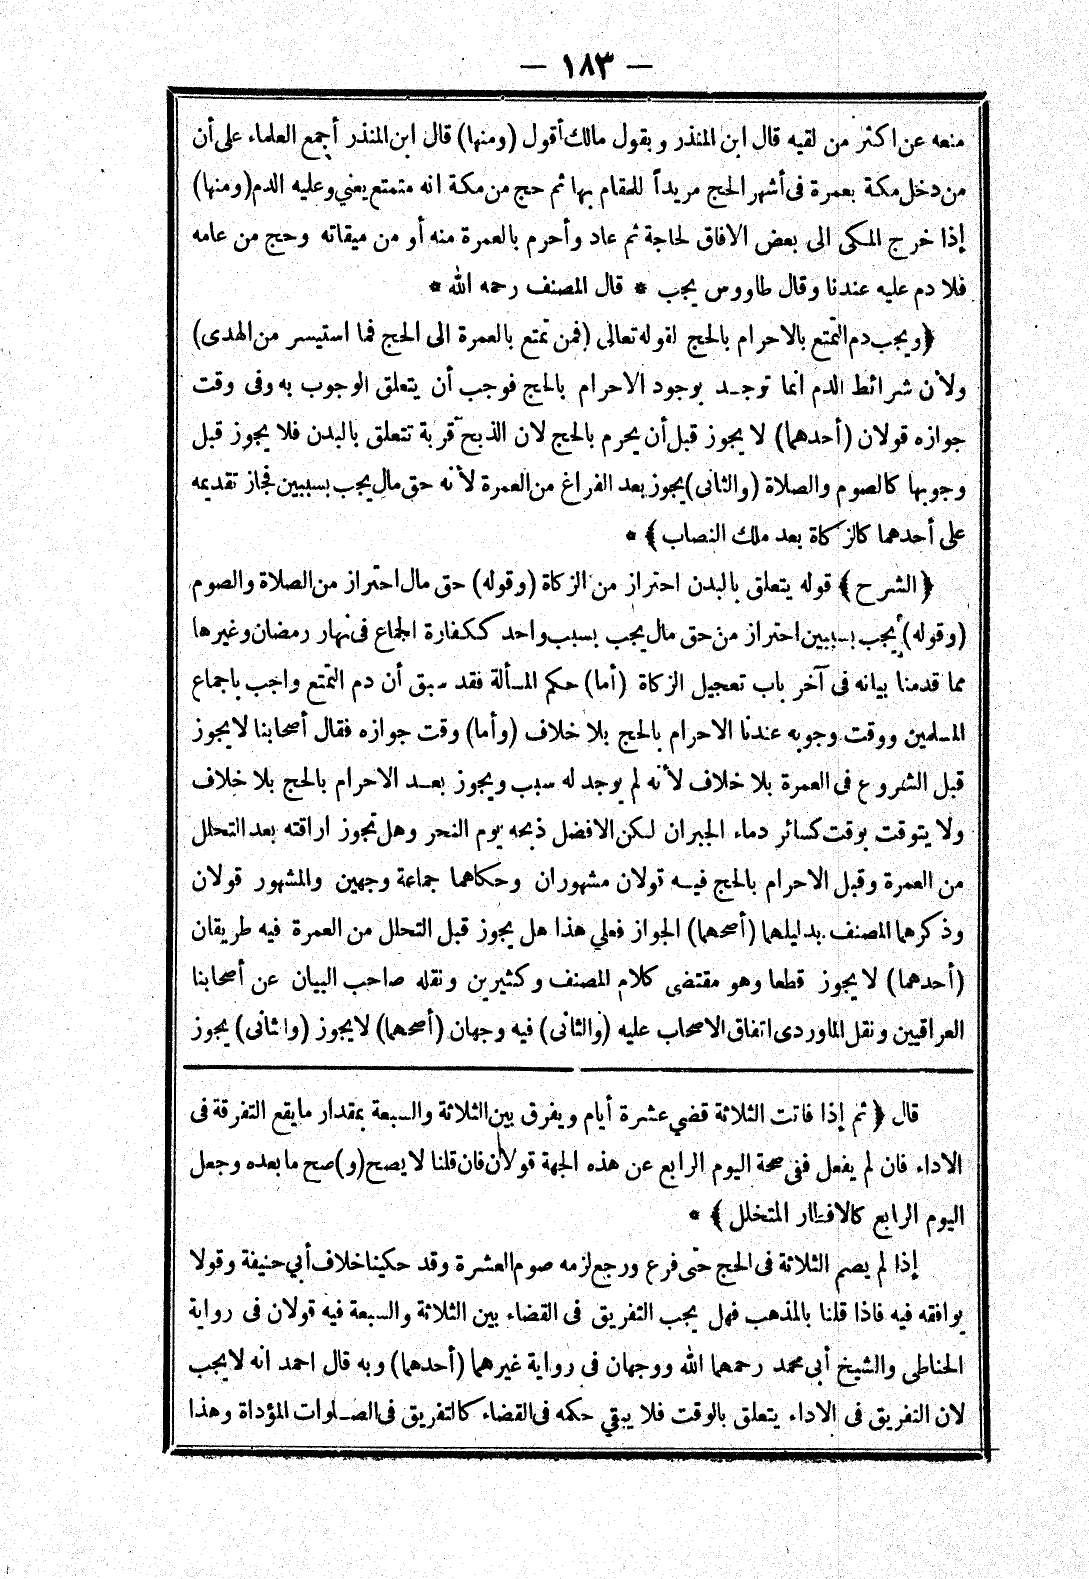 — ١٨٣ —
منعه عن اكثر من لقيه قال ابن المنذر وبقول مالك أقول (ومنها) قال ابن المنذر أجمع العلماء على أن
من دخل مكة بعمرة فى أشهر الحج مريداً للمقام بها ثم حج من مكة انه متمتع يعني وعليه الدم (ومنها)
إذا خرج المكى الى بعض الافاق لحاجة ثم عاد وأحرم بالعمرة منه أو من ميقاته وحج من عامه
فلا دم عليه عندنا وقال طاووس يجب * قال المصنف رحمه الله *
﴿ويجب دم التمتع بالاحرام بالحج لقوله تعالى (فمن تمتع بالعمرة الى الحج فما استيسر من الهدى)
ولأن شرائط الدم انما توجد بوجود الاحرام بالحج فوجب أن يتعلق الوجوب به وفى وقت
جوازه قولان (أحدهما) لا يجوز قبل أن يحرم بالحج لان الذبح قربة تتعلق بالبدن فلا يجوز قبل
وجوبها كالصوم والصلاة (والثانى) يجوز بعد الفراغ من العمرة لأنه حق مال يجب بسببين فجاز تقديمه
على أحدهما كالزكاة بعد ملك النصاب﴾ *
﴿الشرح﴾ قوله يتعلق بالبدن احتراز من الزكاة (وقوله) حق مال احتراز من الصلاة والصوم
(وقوله) يجب بسببين احتراز من حق مال يجب بسبب واحد ككفارة الجماع فى نهار رمضان وغيرها
مما قدمنا بيانه فى آخر باب تعجيل الزكاة (أما) حكم المسألة فقد سبق أن دم التمتع واجب باجماع
المسلمين ووقت وجوبه عندنا الاحرام بالحج بلا خلاف (وأما) وقت جوازه فقال أصحابنا لا يجوز
قبل الشروع فى العمرة بلا خلاف لأنه لم يوجد له سبب ويجوز بعد الاحرام بالحج بلا خلاف
ولا يتوقت بوقت كسائر دماء الجبران لكن الافضل ذبحه يوم النحر وهل تجوز اراقته بعد التحلل
من العمرة وقبل الاحرام بالحج فيه قولان مشهوران وحكاهما جماعة وجهين والمشهور قولان
وذكرهما المصنف بدليلهما (أصحهما) الجواز فعلي هذا هل يجوز قبل التحلل من العمرة فيه طريقان
(أحدهما) لا يجوز قطعا وهو مقتضى كلام المصنف وكثيرين ونقله صاحب البيان عن أصحابنا
العراقيين ونقل الماوردى اتفاق الاصحاب عليه (والثانى) فيه وجهان (أصحهما) لا يجوز (والثانى) يجوز
قال ﴿ثم إذا فاتت الثلاثة قضي عشرة أيام ويفرق بين الثلاثة والسبعة بمقدار ما يقع التفرقة فى
الاداء فان لم يفعل ففى صحة اليوم الرابع عن هذه الجهة قولان فان قلنا لا يصح (و) صح ما بعده وجعل
اليوم الرابع كالافطار المتخلل﴾ *
إذا لم يصم الثلاثة فى الحج حتى فرع ورجع لزمه صوم العشرة وقد حكينا خلاف أبي حنيفة وقولا
يوافقه فيه فاذا قلنا بالمذهب فهل يجب التفريق فى القضاء بين الثلاثة والسبعة فيه قولان فى رواية
الحناطى والشيخ أبى محمد رحمهما الله ووجهان فى رواية غيرهما (أحدهما) وبه قال احمد انه لا يجب
لان التفريق فى الاداء يتعلق بالوقت فلا يبقي حكمه فى القضاء كالتفريق فى الصلوات المؤداة وهذا